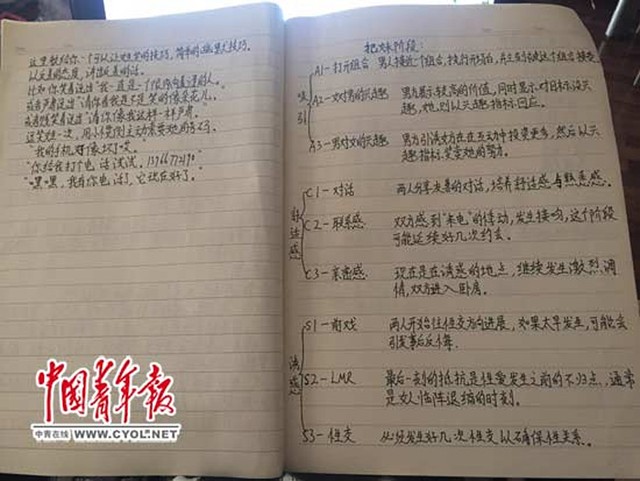 这里教给你一个可以让女生笑的技巧，简单的幽默大技巧。
以反差的态度，讲激反差的话。
比如你笑着说过"我一直是一个很内向羞涩的人。
或者严肃说过"请你看我是不是笑的像朵花儿。
或者随笑着说过"请你像我这样一样严肃。
逗笑她一次，用小惯例主动索要她的号码。
"我的手机好像坏了哎。
"你给我打个电话试试。
"嘿嘿，我有你电话了，它现在好了。
把妹阶段：
吸引
A1-打开组合 男人接近一个组合，执行开场白，并立刻被这个组合接受
A2-女对男的兴趣 男方展示较高的价值，同时显示对目标没兴
趣，她则以兴趣指标回应。
A3-男对女的兴趣 男方引诱女方在互动中投资更多，然后以兴
趣指标奖赏她的努力。
舒适感
C1-对话 两人分享友善的对话，培养舒适感与熟悉感。
C2-联系感 双方感到"来电"的悸动，发生接吻，这个阶段
可能延续好几次约会。
C3-亲密感 现在是在诱惑的地点，继续发生激烈调
情，双方进入卧房。
诱惑
S1-前戏 两人开始往性交方向进展，如果太早发生，可能会
引发事后反悔.
S2-LMR 最后一刻的抵抗是性爱发生之前的不归点，通常
是女人临阵退缩的时刻。
S3-性交 必须发生好几次性交以确保性关系。
中国青年报
中青在线 WWW.CYOL.NET